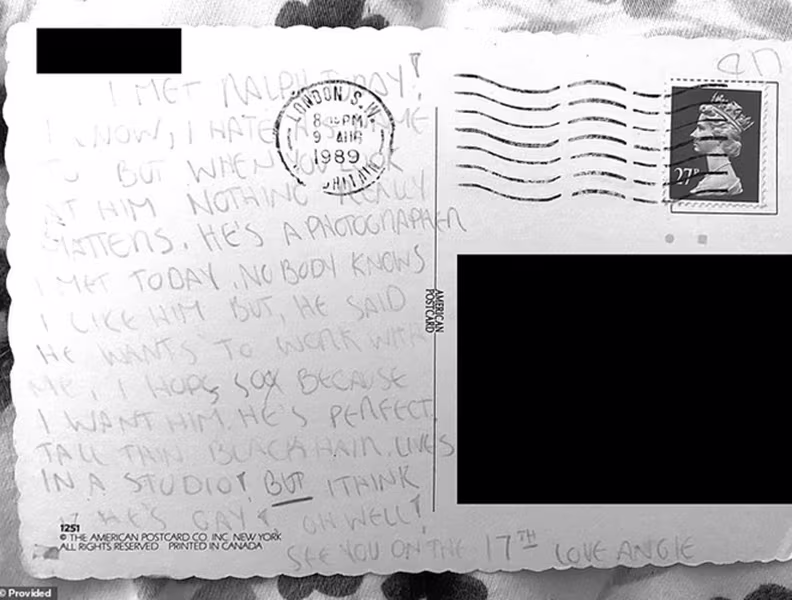 I MET RALPH TODAY!
I KNOW, I HATE HIS NAME
TO BUT WHEN YOU LOOK
AT HIM NOTHING REALLY
MATTERS. HE'S A PHOTOGRAPHER
I MET TODAY. NOBODY KNOWS
I LIKE HIM BUT, HE SAID
HE WANTS TO WORK WITH
ME, I HOPE SO BECAUSE
I WANT HIM. HE'S PERFECT
TALL THIN BLACK HAIR. LIVES
IN A STUDIO! BUT I THINK
HE'S GAY! OH WELL!
SEE YOU ON THE 17TH LOVE ANGIE
1251
© THE AMERICAN POSTCARD CO. INC. NEW YORK
ALL RIGHTS RESERVED PRINTED IN CANADA
LONDON S.W.
PM
9 AUG
1989
27P
AMERICAN
POSTCARD
© Provided